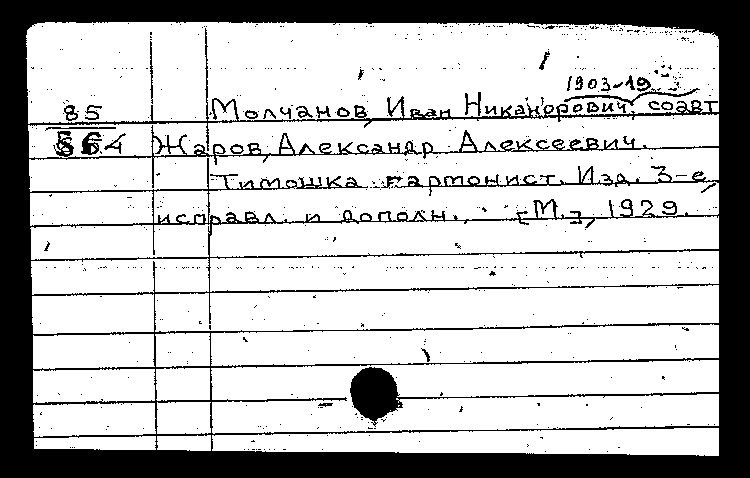 1903-19
85 Молчанов, Иван Никанорович, соавт
564 Жаров, Александр Алексеевич.
Тимошка гармонист. Изд. 3-е,
исправл. и дополн., [М.], 1929.